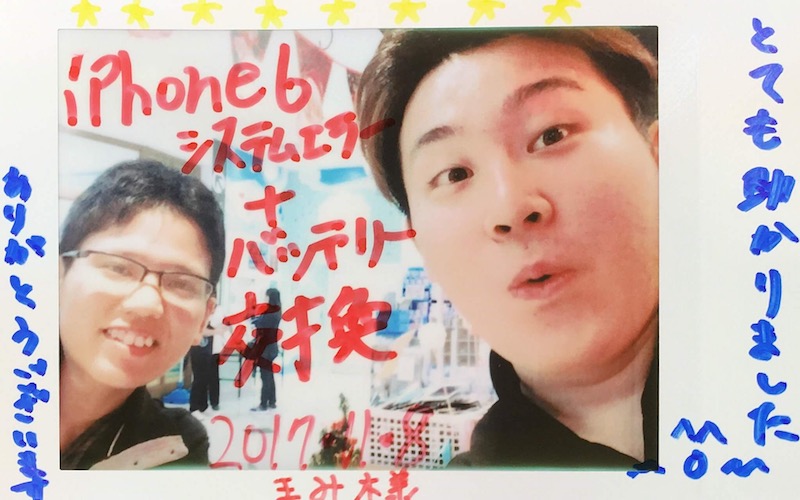 iPhone6
システムエラー
+
バッテリー
交換
2017.11.18
とても助かりました
m(_ _)m
ありがとうございます